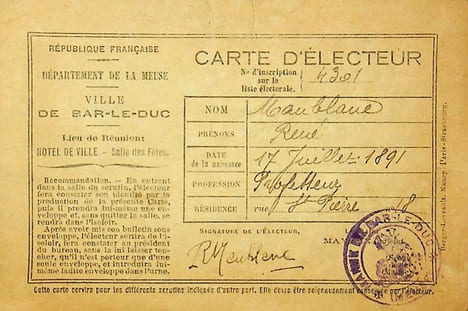 RÉPUBLIQUE FRANÇAISE
DÉPARTEMENT DE LA MEUSE
VILLE
DE BAR-LE-DUC
Lieu de Réunion:
HOTEL DE VILLE - Salle des Fêtes.
Recommandation. — En entrant
dans la salle du scrutin, l'électeur
fera constater son identité par la
production de la présente Carte,
puis il prendra lui-même une en-
veloppe et, sans quitter la salle, se
rendra dans l'Isoloir.
Après avoir mis son bulletin sous
enveloppe, l'Electeur sortira de l'I-
soloir, fera constater au président
du bureau, sans la lui laisser tou-
cher, qu'il n'est porteur que d'une
seule enveloppe, et introduira lui-
même ladite enveloppe dans l'urne.
CARTE D'ÉLECTEUR
No d'inscription
sur la
liste électorale. 4301
NOM Maublanc
PRÉNOMS René
DATE de la naissance 17 Juillet 1891
PROFESSION Professeur
RÉSIDENCE rue St Pierre 48
SIGNATURE DE L'ÉLECTEUR,
R Maublanc
MAIRIE DE BAR-LE-DUC
Berger-Levrault, Nancy-Paris-Strasbourg.
Cette carte servira pour les différents scrutins indiqués d'autre part. Elle devra être soigneusement conservée par l'électeur.